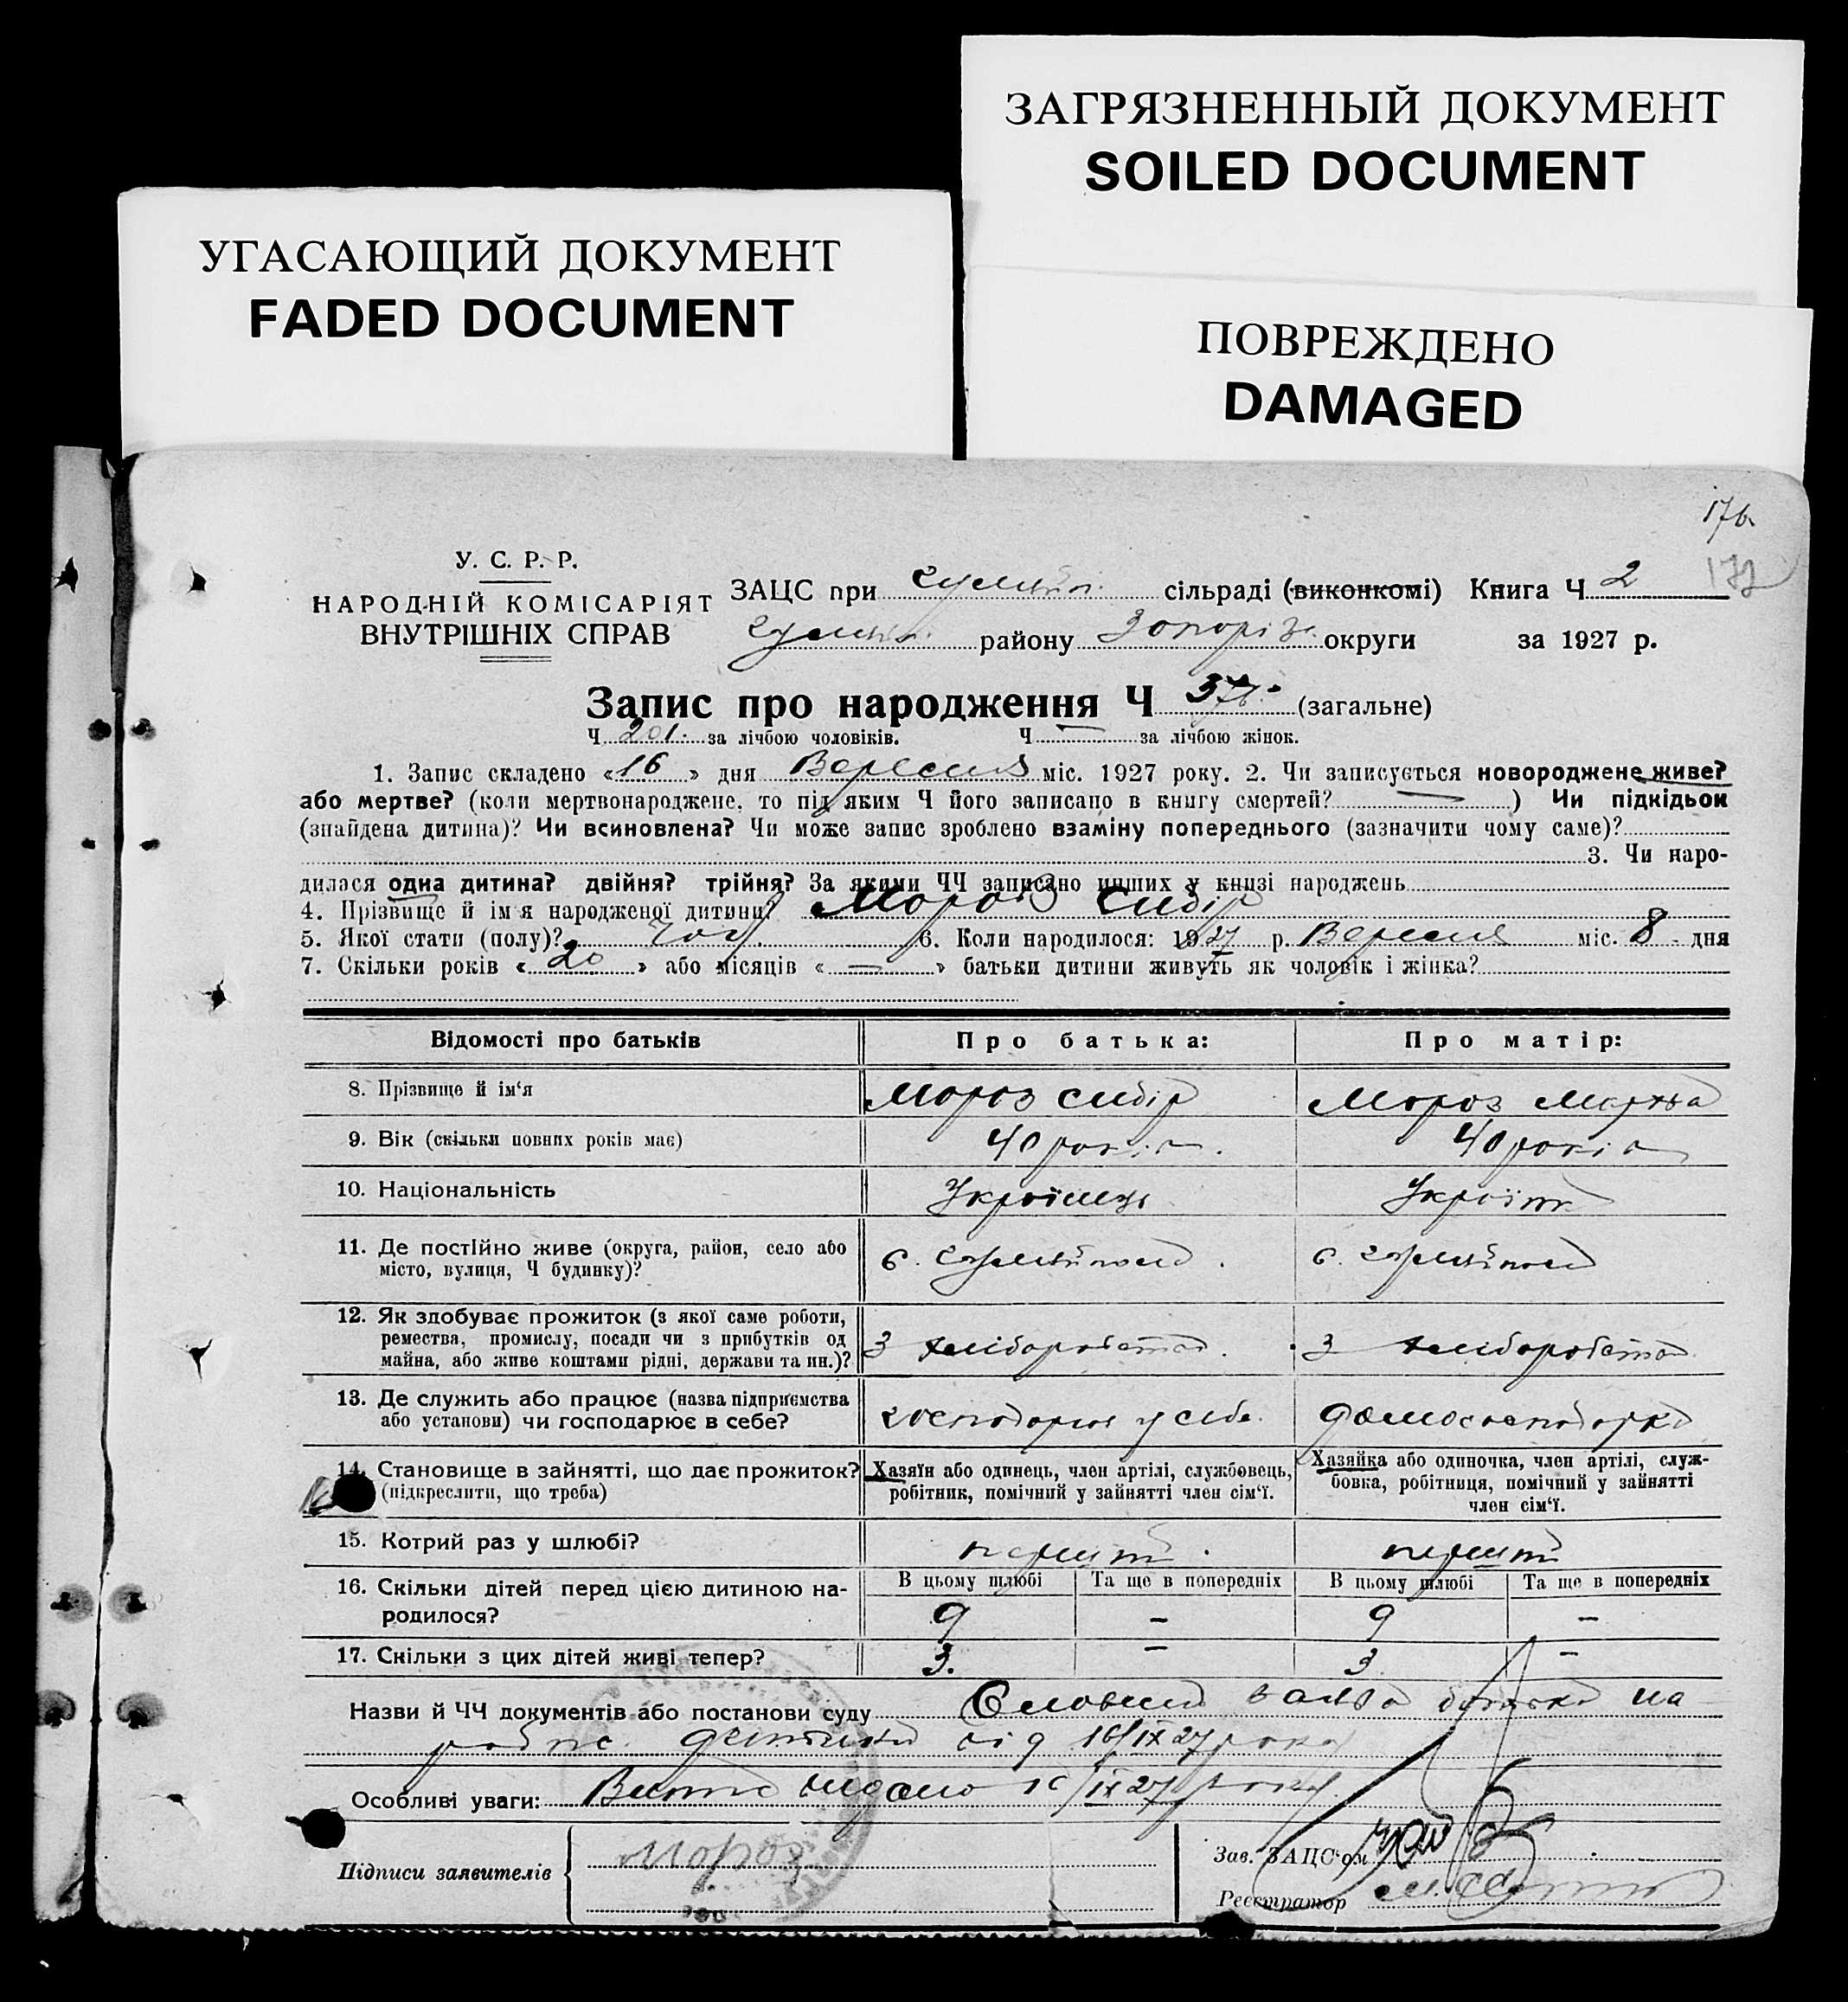 ЗАГРЯЗНЕННЫЙ ДОКУМЕНТ
SOILED DOCUMENT
УГАСАЮЩИЙ ДОКУМЕНТ
FADED DOCUMENT
ПОВРЕЖДЕНО
DAMAGED
176.
177
У. С. Р. Р.
НАРОДНІЙ КОМІСАРІЯТ
ВНУТРІШНІХ СПРАВ
ЗАЦС при сільраді (виконкомі) Книга Ч 2
району Запоріз. округи за 1927 р.
Запис про народження Ч 376. (загальне)
Ч 201. за лічбою чоловіків. Ч — за лічбою жінок.
1. Запис складено «16» дня Вересня міс. 1927 року. 2. Чи записується новороджене живе?
або мертве? (коли мертвонароджене, то під яким Ч його записано в книгу смертей? —) Чи підкідьок
(знайдена дитина)? Чи всиновлена? Чи може запис зроблено взаміну попереднього (зазначити чому саме)?
3. Чи наро-
дилася одна дитина? двійня? трійня? За якими ЧЧ записано инших у книзі народжень
4. Прізвище й ім'я народженої дитини? Мороз Сидір
5. Якої стати (полу)? чол. 6. Коли народилося: 1927 р. Вересня міс. 8 дня
7. Скільки років «20» або місяців «—» батьки дитини живуть як чоловік і жінка?
Відомості про батьків Про батька: Про матір:
8. Прізвище й ім'я Мороз Сидір Мороз Марфа
9. Вік (скільки повних років має) 40 років. 40 років
10. Національність Українець Українка
11. Де постійно живе (округа, район, село або
місто, вулиця, Ч будинку)?
12. Як здобуває прожиток (з якої саме роботи,
ремества, промислу, посади чи з прибутків од
майна, або живе коштами рідні, держави та ин.)?
З хліборобства. З хліборобства.
13. Де служить або працює (назва підприємства
або установи) чи господарює в себе?
господарює у себе. домогосподарка
14. Становище в зайнятті, що дає прожиток?
(підкреслити, що треба)
Хазяїн або одинець, член артілі, службовець,
робітник, помічний у зайнятті член сім'ї.
Хазяйка або одиночка, член артілі, служ-
бовка, робітниця, помічний у зайнятті
член сім'ї.
15. Котрий раз у шлюбі? перший. перший
16. Скільки дітей перед цією дитиною на-
родилося?
В цьому шлюбі Та ще в попередніх В цьому шлюбі Та ще в попередніх
9 — 9 —
17. Скільки з цих дітей живі тепер? 3. — 3 —
Назви й ЧЧ документів або постанови суду Словесна заява батька на
дитини від 16/IX 27 року
Особливі уваги: видано 16/IX 27 року.
Підписи заявителів Мороз
Зав. ЗАЦС'ом
Реєстратор